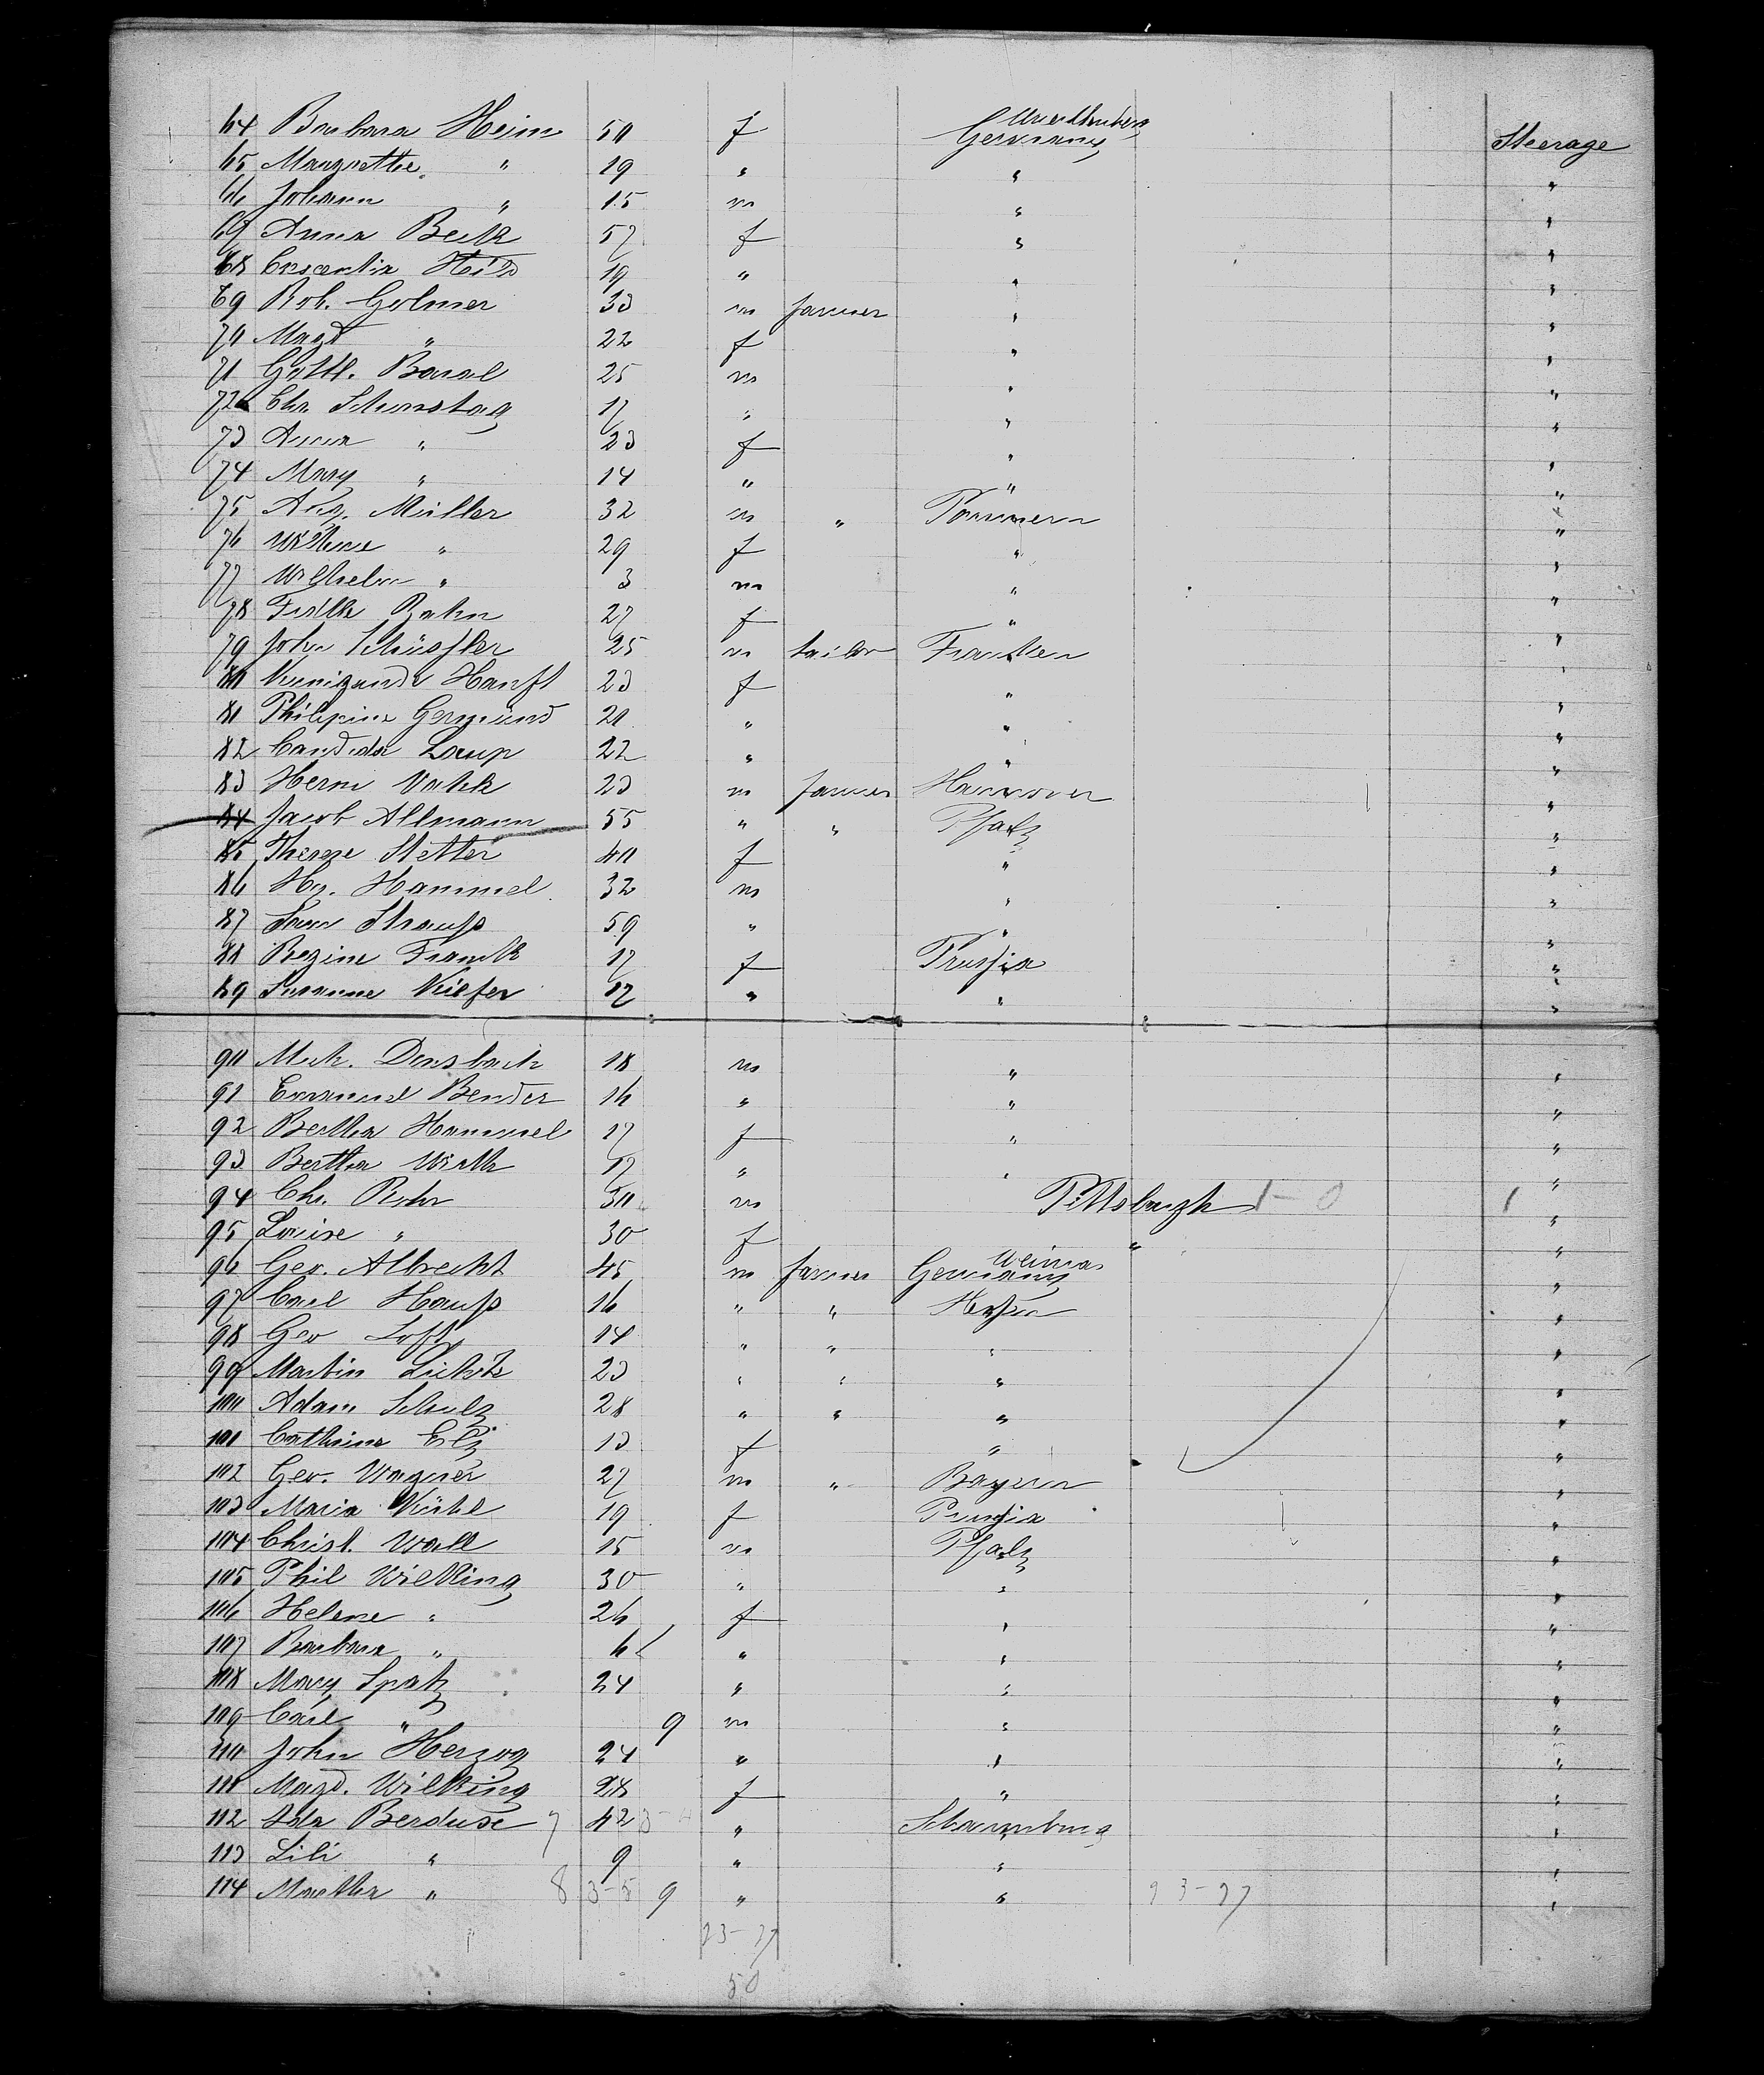 64 Barbara Heim 50 f Germany Steerage
65 Margrethe " 19 " " "
66 Johann " 15 m " "
67 Anna Beck 57 f " "
68 Crescentia Heid 19 " " "
69 Rob. Golmer 33 m farmer " "
70 Magd " 22 f " "
71 Gottl. Banal 25 m " "
72 Chr. Schonstag 17 " " "
73 Anna " 23 f " "
74 Mary " 14 " " "
75 Aug. Müller 32 m " Pommern "
76 " 29 f " "
77 Wilhelm " 3 m " "
78 Rahn 27 f " "
79 John Schüssler 25 m tailor Franken "
80 Kunigunde Hanft 23 f " "
81 Philipine 20 " " "
82 Candida Laup 22 " " "
83 Herm 23 m farmer Hannover "
84 Jacob Allmann 55 " " Pfalz "
85 Therese Stetter 40 f " "
86 Hy. Hammel 32 m " "
87 Strauss 59 " " "
88 Regine Frank 17 f Prussia "
89 Susanne Kiefer 17 " " "
90 Mich. Densbach 18 m " "
91 Emanuel Bender 16 " " "
92 Bertha Hammel 17 f " "
93 Bertha Wirth 17 " " "
94 Chr. Rohr 30 m Pittsburgh 1-0 1 "
95 Louise " 30 f " "
96 Geo. Albrecht 45 m farmer Weimar Germany "
97 Carl Hauss 16 " " Hessen "
98 Geo Loft 14 " " " "
99 Martin 23 " " " "
100 Adam Schulz 28 " " " "
101 Catharina 13 f " "
102 Geo. Wagner 27 m " Bayern "
103 Maria 19 f Prussia "
104 Christ. Wall 15 m Pfalz "
105 Phil Wilking 30 " " "
106 Helene " 26 f " "
107 Barbara " 6 " " "
108 Mary Spatz 24 " " "
109 Carl " 9 m " "
110 John Herzog 24 " " "
111 Magd. Wilking 28 f " "
112 Ida Berduse 7 42 3-4 " Schaumburg "
113 Lili " 9 " " "
114 Martha " 8 3-5 9 " " 23-27 "
23-27
50